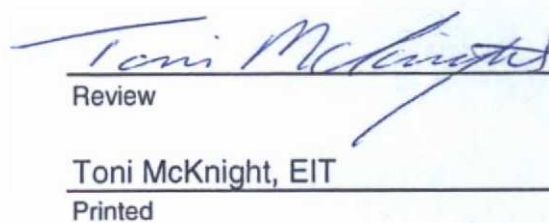 Toni McKnight
Review
Toni McKnight, EIT
Printed